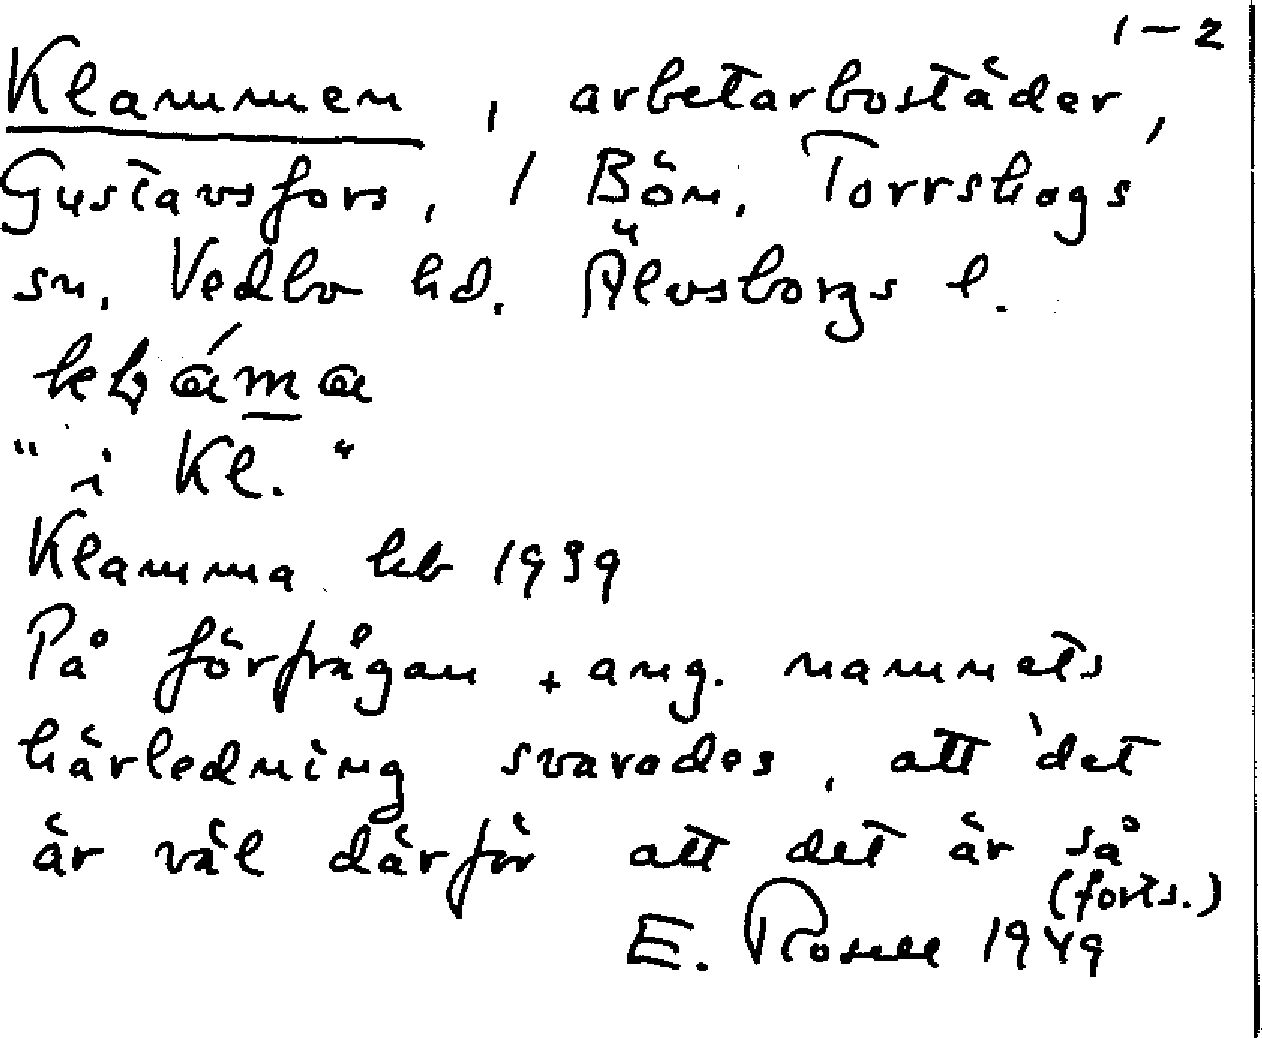 1–2
Klammen, arbetarbostäder,
Gustavsfors, 1 Bön, Torrskogs
sn, Vedbo hd. Älvsborgs l.
"i Kl."
Klamma kb 1939
På förfrågan + ang. namnets
härledning svarades, att 'det
är väl därför att det är så
(forts.)
E. Rosell 1949